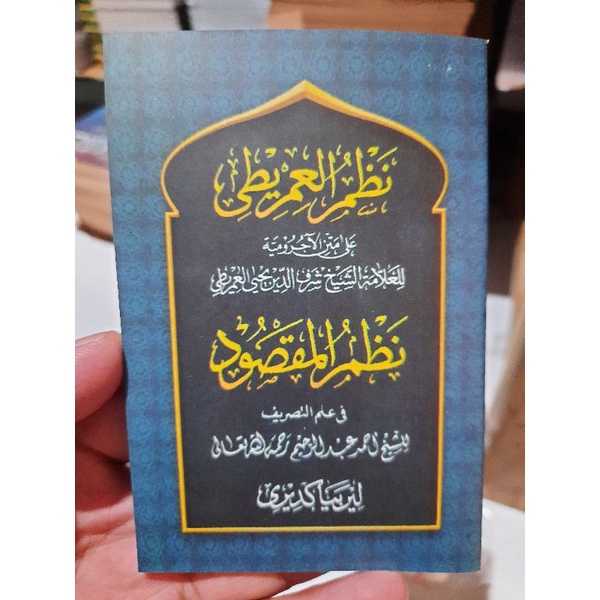 نَظْمُ الْعِمْرِيطِي
عَلَى مَتْنِ الآجُرُومِيَّة
لِلعَلَّامَة الشَّيْخ شَرَفِ الدِّيْن يَحْيَى العِمْرِيطِي
نَظْمُ الْمَقْصُود
فى علم التصريف
للشيخ احمد عبد الرحيم رحمه الله تعالى
ليربيا كديرى